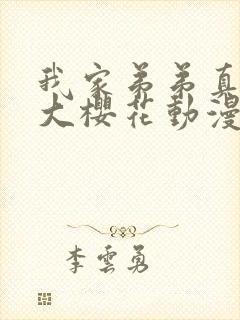 我家弟弟真
大櫻花動漫
李雲勇